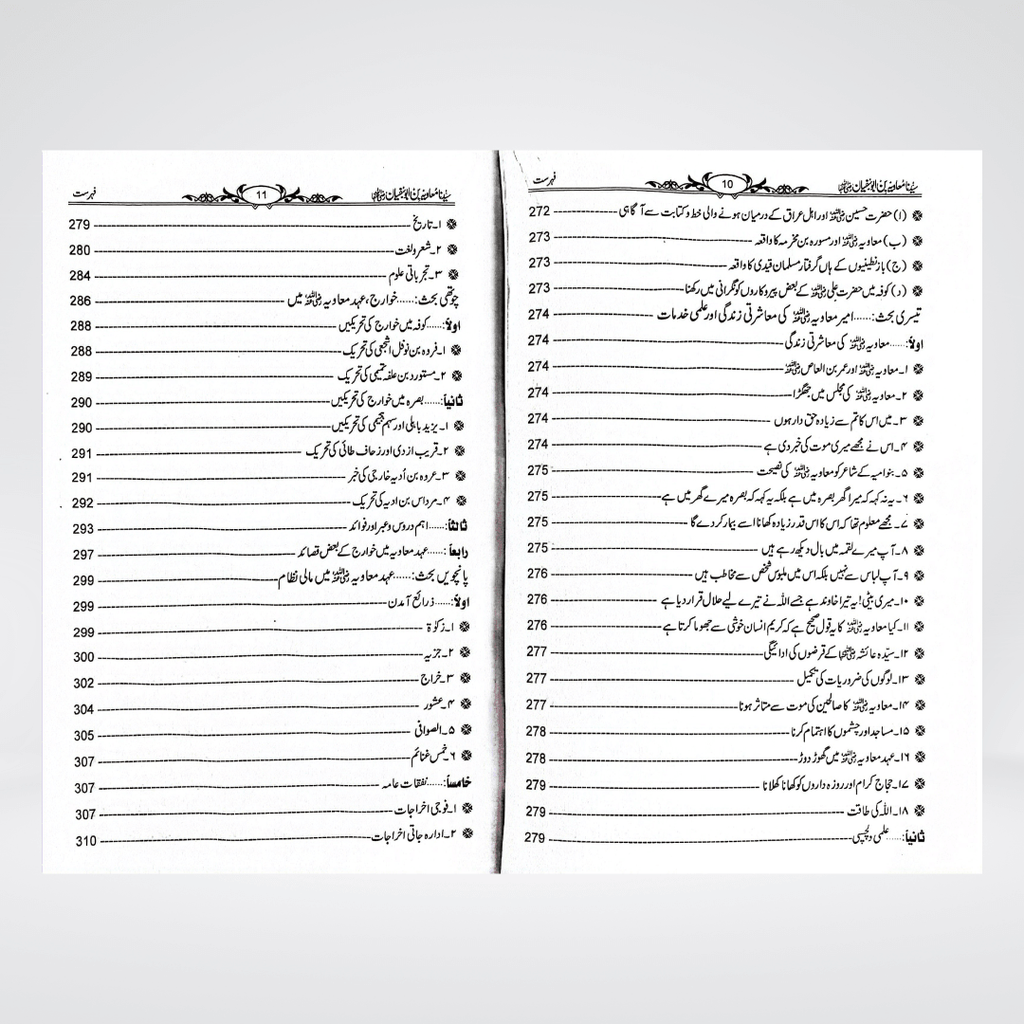 سیدنا معاویہ بن ابوسفیان رضی اللہ عنہ 10 فہرست
(ا) حضرت حسین رضی اللہ عنہ اور اہل عراق کے درمیان ہونے والی خط و کتابت سے آگاہی 272
(ب) معاویہ رضی اللہ عنہ اور مسورہ بن مخرمہ کا واقعہ 273
(ج) بازنطینیوں کے ہاں گرفتار مسلمان قیدی کا واقعہ 273
(د) کوفہ میں حضرت علی رضی اللہ عنہ کے بعض پیروکاروں کو نگرانی میں رکھنا 273
تیسری بحث:...... امیر معاویہ رضی اللہ عنہ کی معاشرتی زندگی اور علمی خدمات 274
اولاً:...... معاویہ رضی اللہ عنہ کی معاشرتی زندگی 274
۱۔ معاویہ رضی اللہ عنہ اور عمر بن العاص رضی اللہ عنہ 274
۲۔ معاویہ رضی اللہ عنہ کی مجلس میں جھگڑا 274
۳۔ میں اس کا تم سے زیادہ حق دار ہوں 274
۴۔ اس نے مجھے میری موت کی خبر دی ہے 274
۵۔ بنو امیہ کے شاعر کو معاویہ رضی اللہ عنہ کی نصیحت 275
۶۔ یہ نہ کہہ کہ میرا گھر بصرہ میں ہے بلکہ یہ کہہ کہ بصرہ میرے گھر میں ہے 275
۷۔ مجھے معلوم تھا کہ اس کا اس قدر زیادہ کھانا اسے بیمار کر دے گا 275
۸۔ آپ میرے لقمہ میں بال دیکھ رہے ہیں 275
۹۔ آپ لباس سے نہیں بلکہ اس میں ملبوس شخص سے مخاطب ہیں 276
۱۰۔ میری بیٹی! یہ تیرا خاوند ہے جسے اللہ نے تیرے لیے حلال قرار دیا ہے 276
۱۱۔ کیا معاویہ رضی اللہ عنہ کا یہ قول صحیح ہے کہ کریم انسان خوشی سے جھوما کرتا ہے 276
۱۲۔ سیّدہ عائشہ رضی اللہ عنہا کے قرضوں کی ادائیگی 277
۱۳۔ لوگوں کی ضروریات کی تکمیل 277
۱۴۔ معاویہ رضی اللہ عنہ کا صالحین کی موت سے متاثر ہونا 277
۱۵۔ مساجد اور چشموں کا اہتمام کرنا 278
۱۶۔ عہد معاویہ رضی اللہ عنہ میں گھوڑ دوڑ 278
۱۷۔ حجاج کرام اور روزہ داروں کو کھانا کھلانا 279
۱۸۔ اللہ کی طاقت 279
ثانیاً:...... علمی دلچسپی 279
سیدنا معاویہ بن ابوسفیان رضی اللہ عنہ 11 فہرست
۱۔ تاریخ 279
۲۔ شعر و لغت 280
۳۔ تجرباتی علوم 284
چوتھی بحث:...... خوارج، عہد معاویہ رضی اللہ عنہ میں 286
اولاً:...... کوفہ میں خوارج کی تحریکیں 288
۱۔ فروہ بن نوفل اشجعی کی تحریک 288
۲۔ مستورد بن علفہ تمیمی کی تحریک 289
ثانیاً:...... بصرہ میں خوارج کی تحریکیں 290
۱۔ یزید باہلی اور سہم ہجیمی کی تحریکیں 290
۲۔ قریب ازدی اور زحاف طائی کی تحریک 291
۳۔ عروہ بن اُدیہ خارجی کی خبر 291
۴۔ مرداس بن ادیہ کی تحریک 292
ثالثاً:...... اہم دروس و عبر اور فوائد 293
رابعاً:...... عہد معاویہ میں خوارج کے بعض قصائد 297
پانچویں بحث:...... عہد معاویہ رضی اللہ عنہ میں مالی نظام 299
اولاً:...... ذرائع آمدن 299
۱۔ زکوٰۃ 299
۲۔ جزیہ 300
۳۔ خراج 302
۴۔ عشور 304
۵۔ الصوافی 305
۶۔ خمس غنائم 307
خامساً:...... نفقات عامہ 307
۱۔ فوجی اخراجات 307
۲۔ ادارہ جاتی اخراجات 310